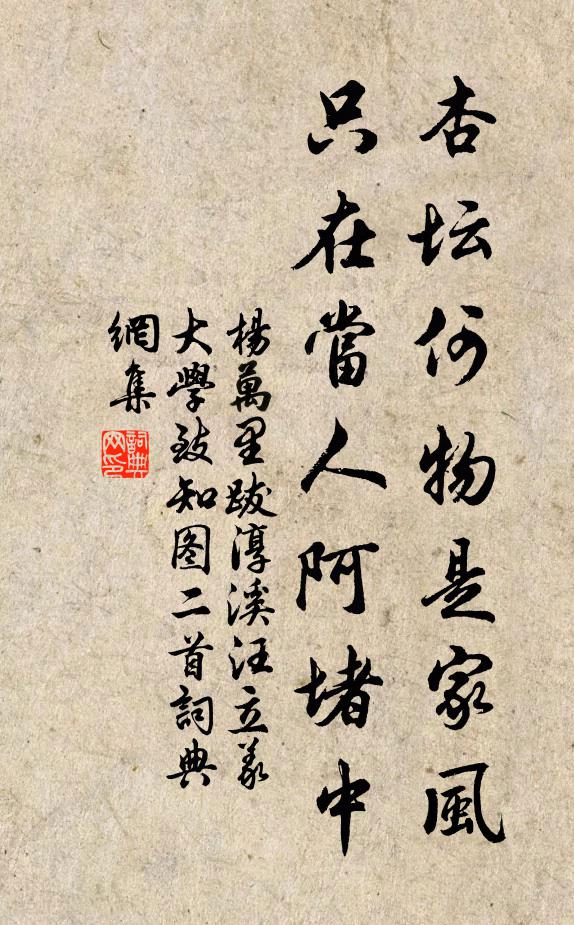 杏坛何物是家風
只在當人阿堵中
楊萬里跋淳溪汪立義
大學致知图二首詞典
網集
詞典
网印